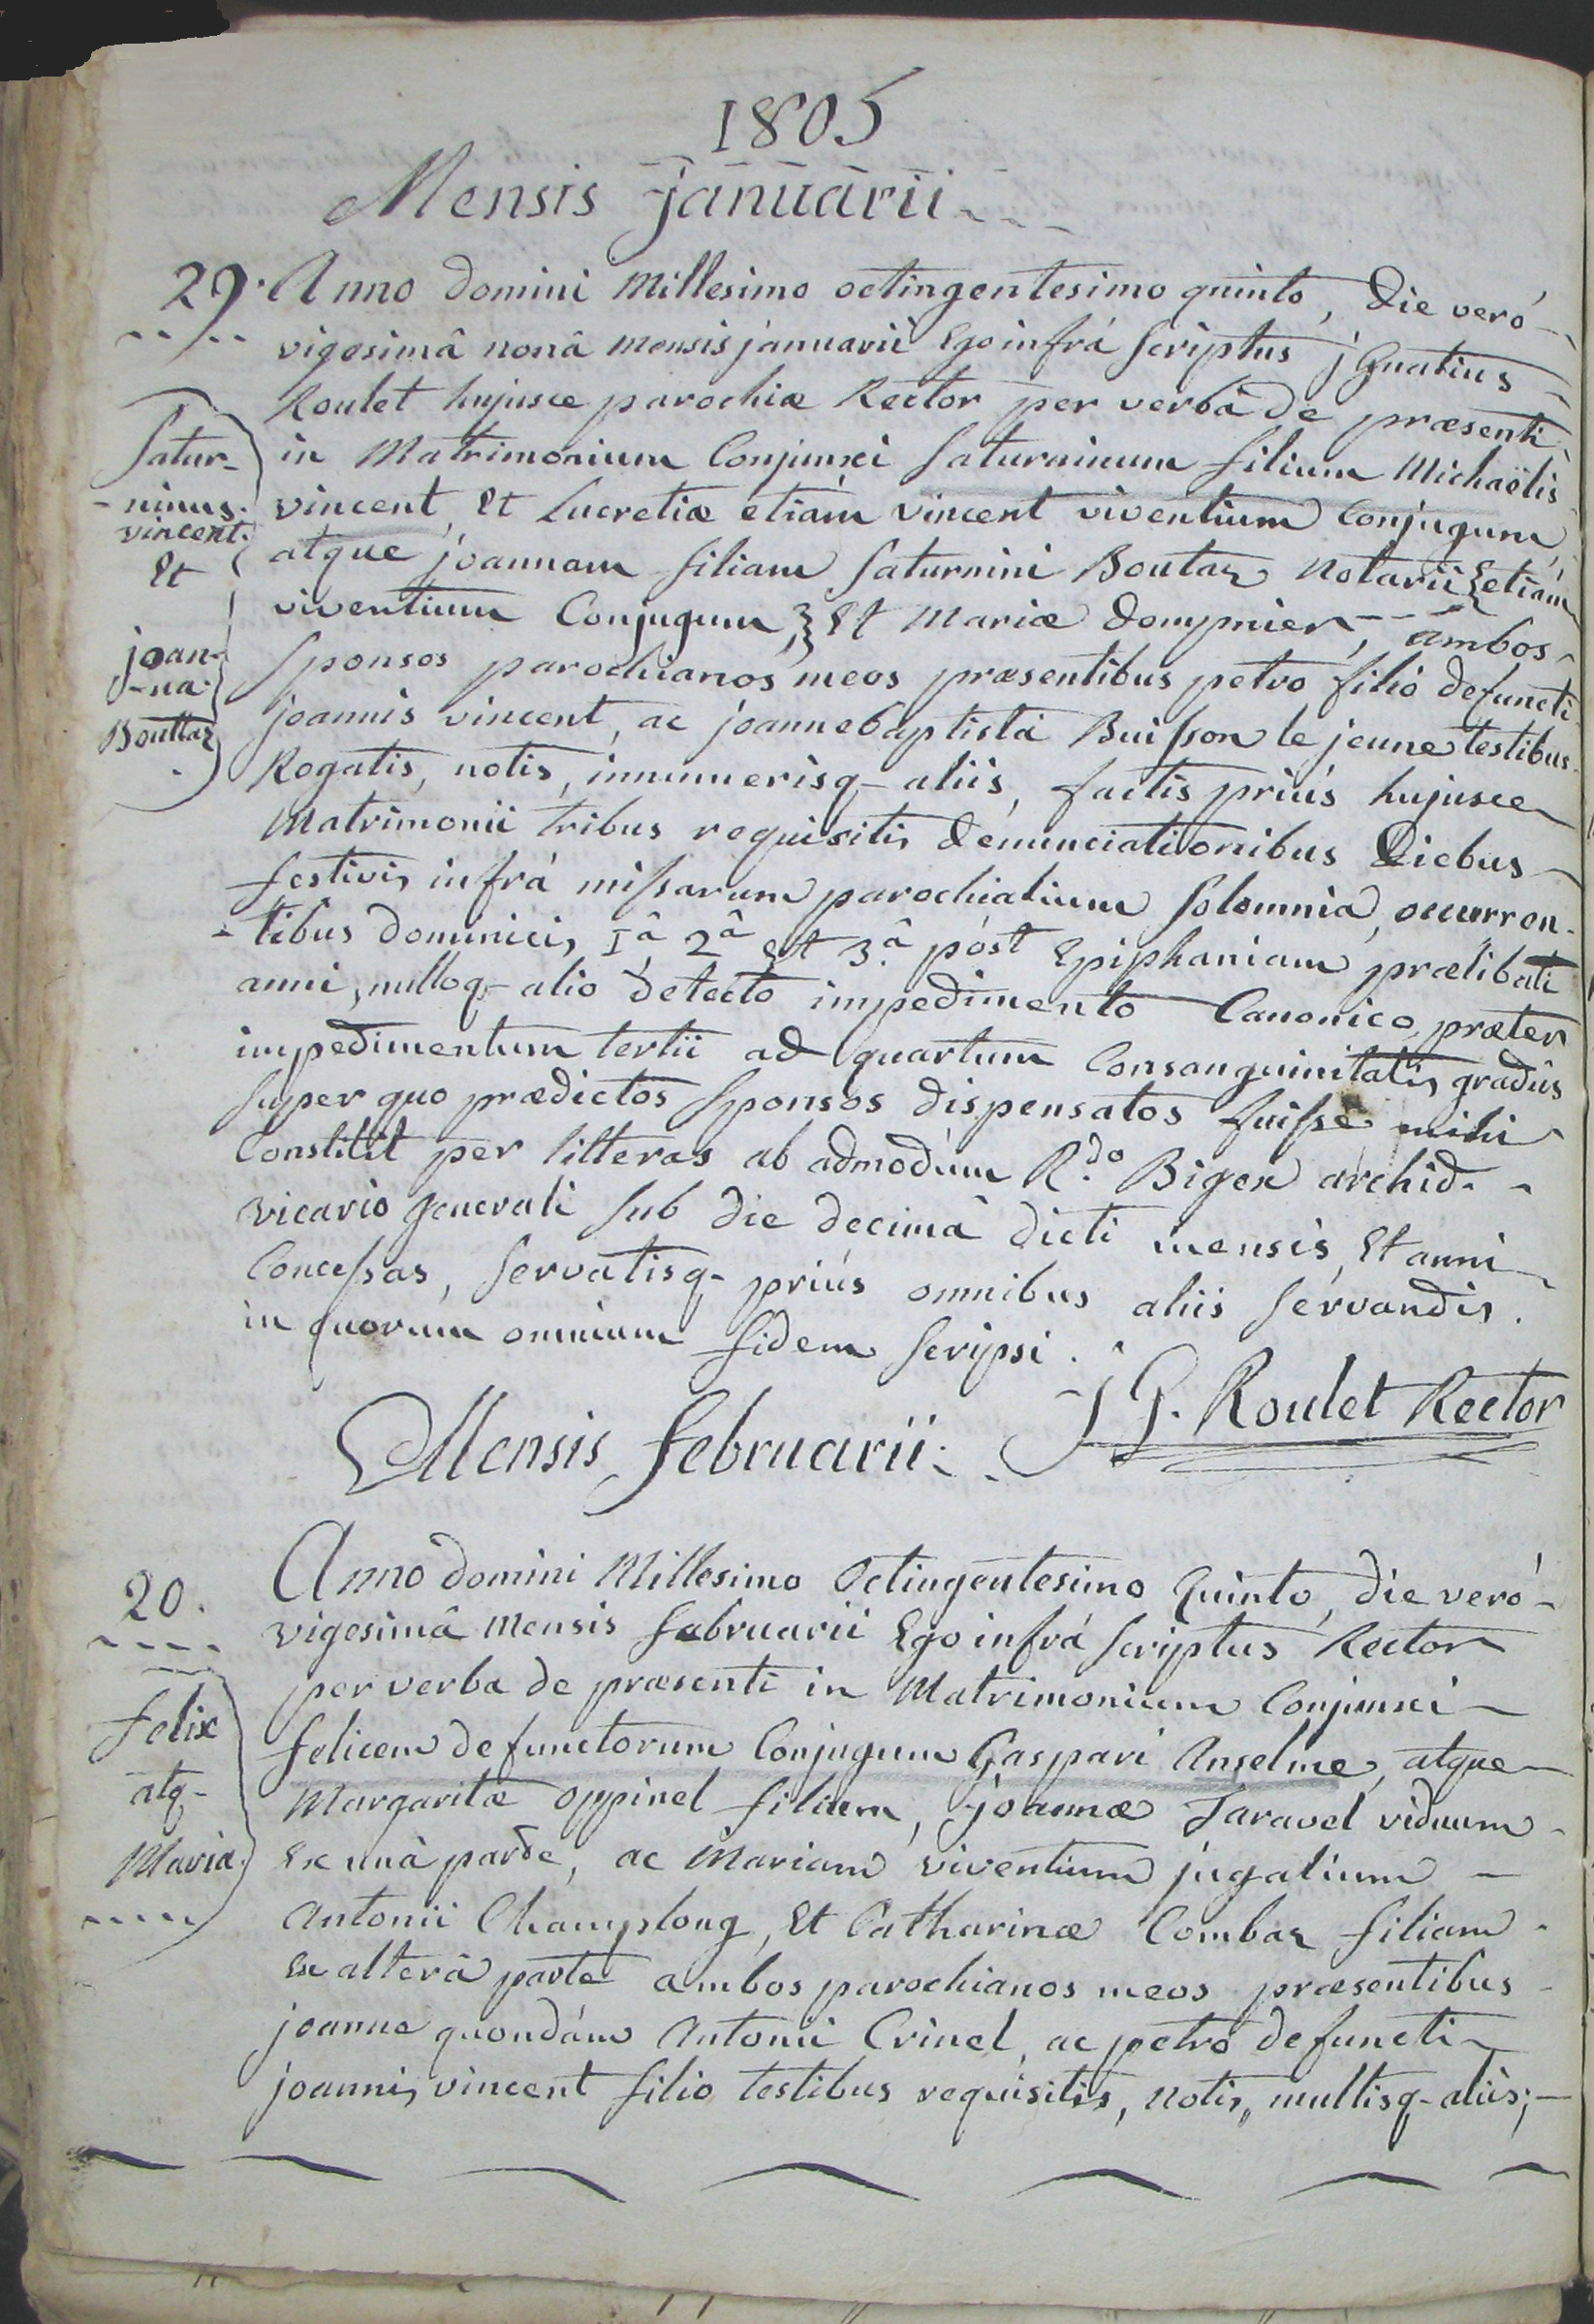 1805
Mensis januarii
29. Anno domini Millesimo octingentesimo quinto, die veró
vigesimâ nonâ mensis januarii Ego infrá scriptus jGnatius
Roulet hujusce parochiæ Rector per verba de præsenti
Satur-
in Matrimonium Conjunxi Saturninum filium Michaëlis
-ninus.
vincent, Et Lucretiæ etiám vincent viventium Conjugum
vincent.
Et
atque joannam filiam Saturnini Boutaz Notarii etiám
viventium Conjugum, Et Mariæ dompnier, ambos
joan-
-na
Sponsos parochianos meos præsentibus petro filio defuncti
Bouttaz
joannis vincent, ac joannebaptistâ Buisson le jeune testibus
Rogatis, notis, innumerisq- aliis, factis priús hujusce
Matrimonii tribus requisitis denunciationibus Diebus
festivis infrá missarum parochialium solemnia, occurren-
-tibus dominicis 1â 2â Et 3.â póst Epiphaniam prælibati
anni, nulloq- alio detecto impedimento Canonico, præter
impedimentum tertii ad quartum Consanguinitatis gradûs
super quo prædictos Sponsos dispensatos fuisse mihi
Constitit per litteras ab admodúm R.do Bigex archid.
vicario generali sub die decimâ dicti mensis, Et anni
Concessas, servatisq- priús omnibus aliis servandis.
in quorum omnium fidem scripsi.
JG. Roulet Rector
Mensis februarii
20.
Anno domini Millesimo Octingentesimo Quinto, die veró
vigesimâ mensis februarii Ego infrá scriptus Rector
per verba de præsenti in Matrimonium Conjunxi
felix
felicem defunctorum Conjugum Gaspari Anselme, atque
atq-
Margaritæ oppinel filium, joannæ Taravel viduum
Maria.
Ex unâ parte, ac Mariam viventium jugalium
Antonii Champlong, Et Catharinæ Combaz filiam
Ex alterâ parte ambos parochianos meos præsentibus
joanne quondám Antonii Crinel, ac petro defuncti
joannis vincent filio testibus requisitis, Notis, multisq- aliis;